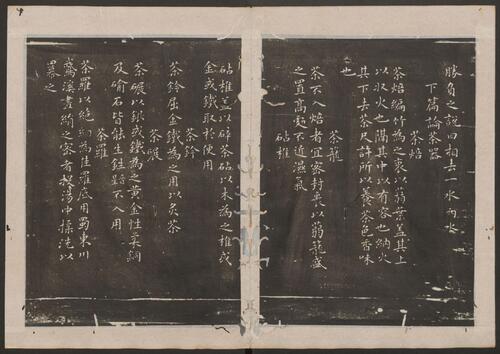 勝負之說曰相去一水兩水
下篇論茶器
茶焙
茶焙編竹為之裹以蒻葉蓋其上
以收火也隔其中以有容也納火
其下去茶尺許所以養茶色香味
也
茶籠
茶不入焙者宜密封裹以蒻籠盛
之置高處不近濕氣
砧椎
砧椎蓋以碎茶砧以木為之椎或
金或鐵取於便用
茶鈐
茶鈐屈金鐵為之用以炙茶
茶碾
茶碾以銀或鐵為之黃金性柔銅
及鍮石皆能生鉎不入用
茶羅
茶羅以絕細為佳羅底用蜀東川
鵝溪畫絹之密者投湯中揉洗以
羃之